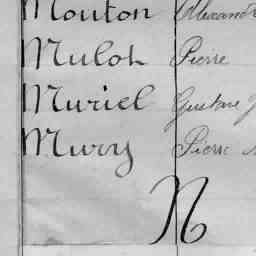 Mouton Alexand
Muloh Pierre
Muriel Gustave
Mury Pierre
N